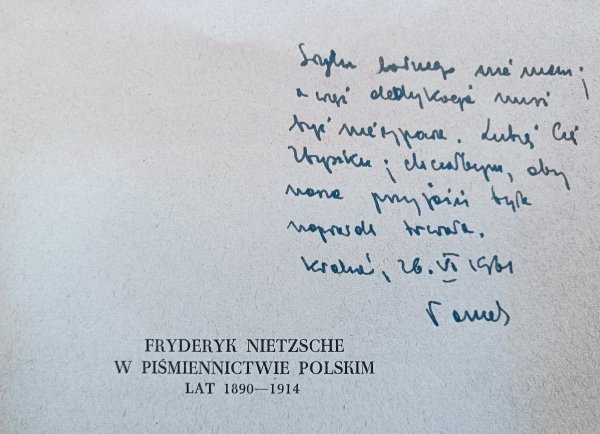 Stylu ładnego nie mam;
a więc dedykacja musi
być nieszczera. Lubię Cię
i chciałbym, aby
nasza przyjaźń była
naprawdę trwała.
Kraków, 26. VI 1961
Tomek
FRYDERYK NIETZSCHE
W PIŚMIENNICTWIE POLSKIM
LAT 1890—1914